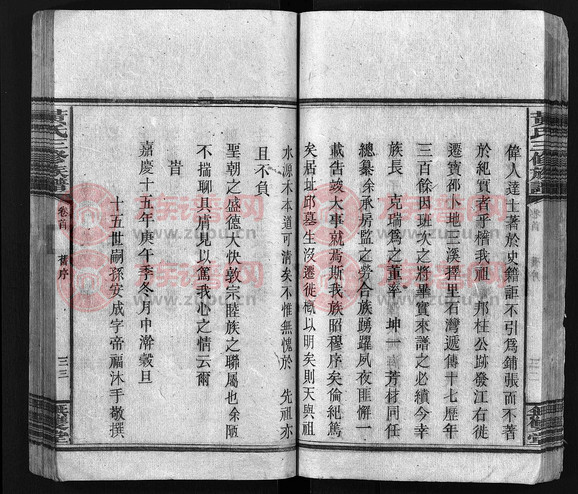 黃氏三修族譜
卷首
舊序
偉人達士著於史籍詎不引爲鋪張而不著
於紀實者乎稽我祖 邦柱公跡發江右徙
遷寶邵卜地三溪擇里石灣遞傳十七歷年
三百餘因班次之將畢實來譜之必續今幸
族長 克瑞爲之董率 坤一 芳材同任
總纂余承房監之勞合族踴躍夙夜匪懈一
載告竣大事就焉斯我族昭穆序矣倫紀篤
矣居址邱墓生沒遷徙瞭以明矣則天與祖
水源木本道可清矣不惟無愧於 先祖亦
且不負
聖朝之盛德大快敦宗睦族之聯屬也余陋
不揣聊具膚見以篤我心之情云爾
旹
嘉慶十五年庚午季冬月中澣穀旦
十五世嗣孫安成字帝福沐手敬撰
黃氏三修族譜
卷首
舊序
三三
族譜网
www.zupu.cn